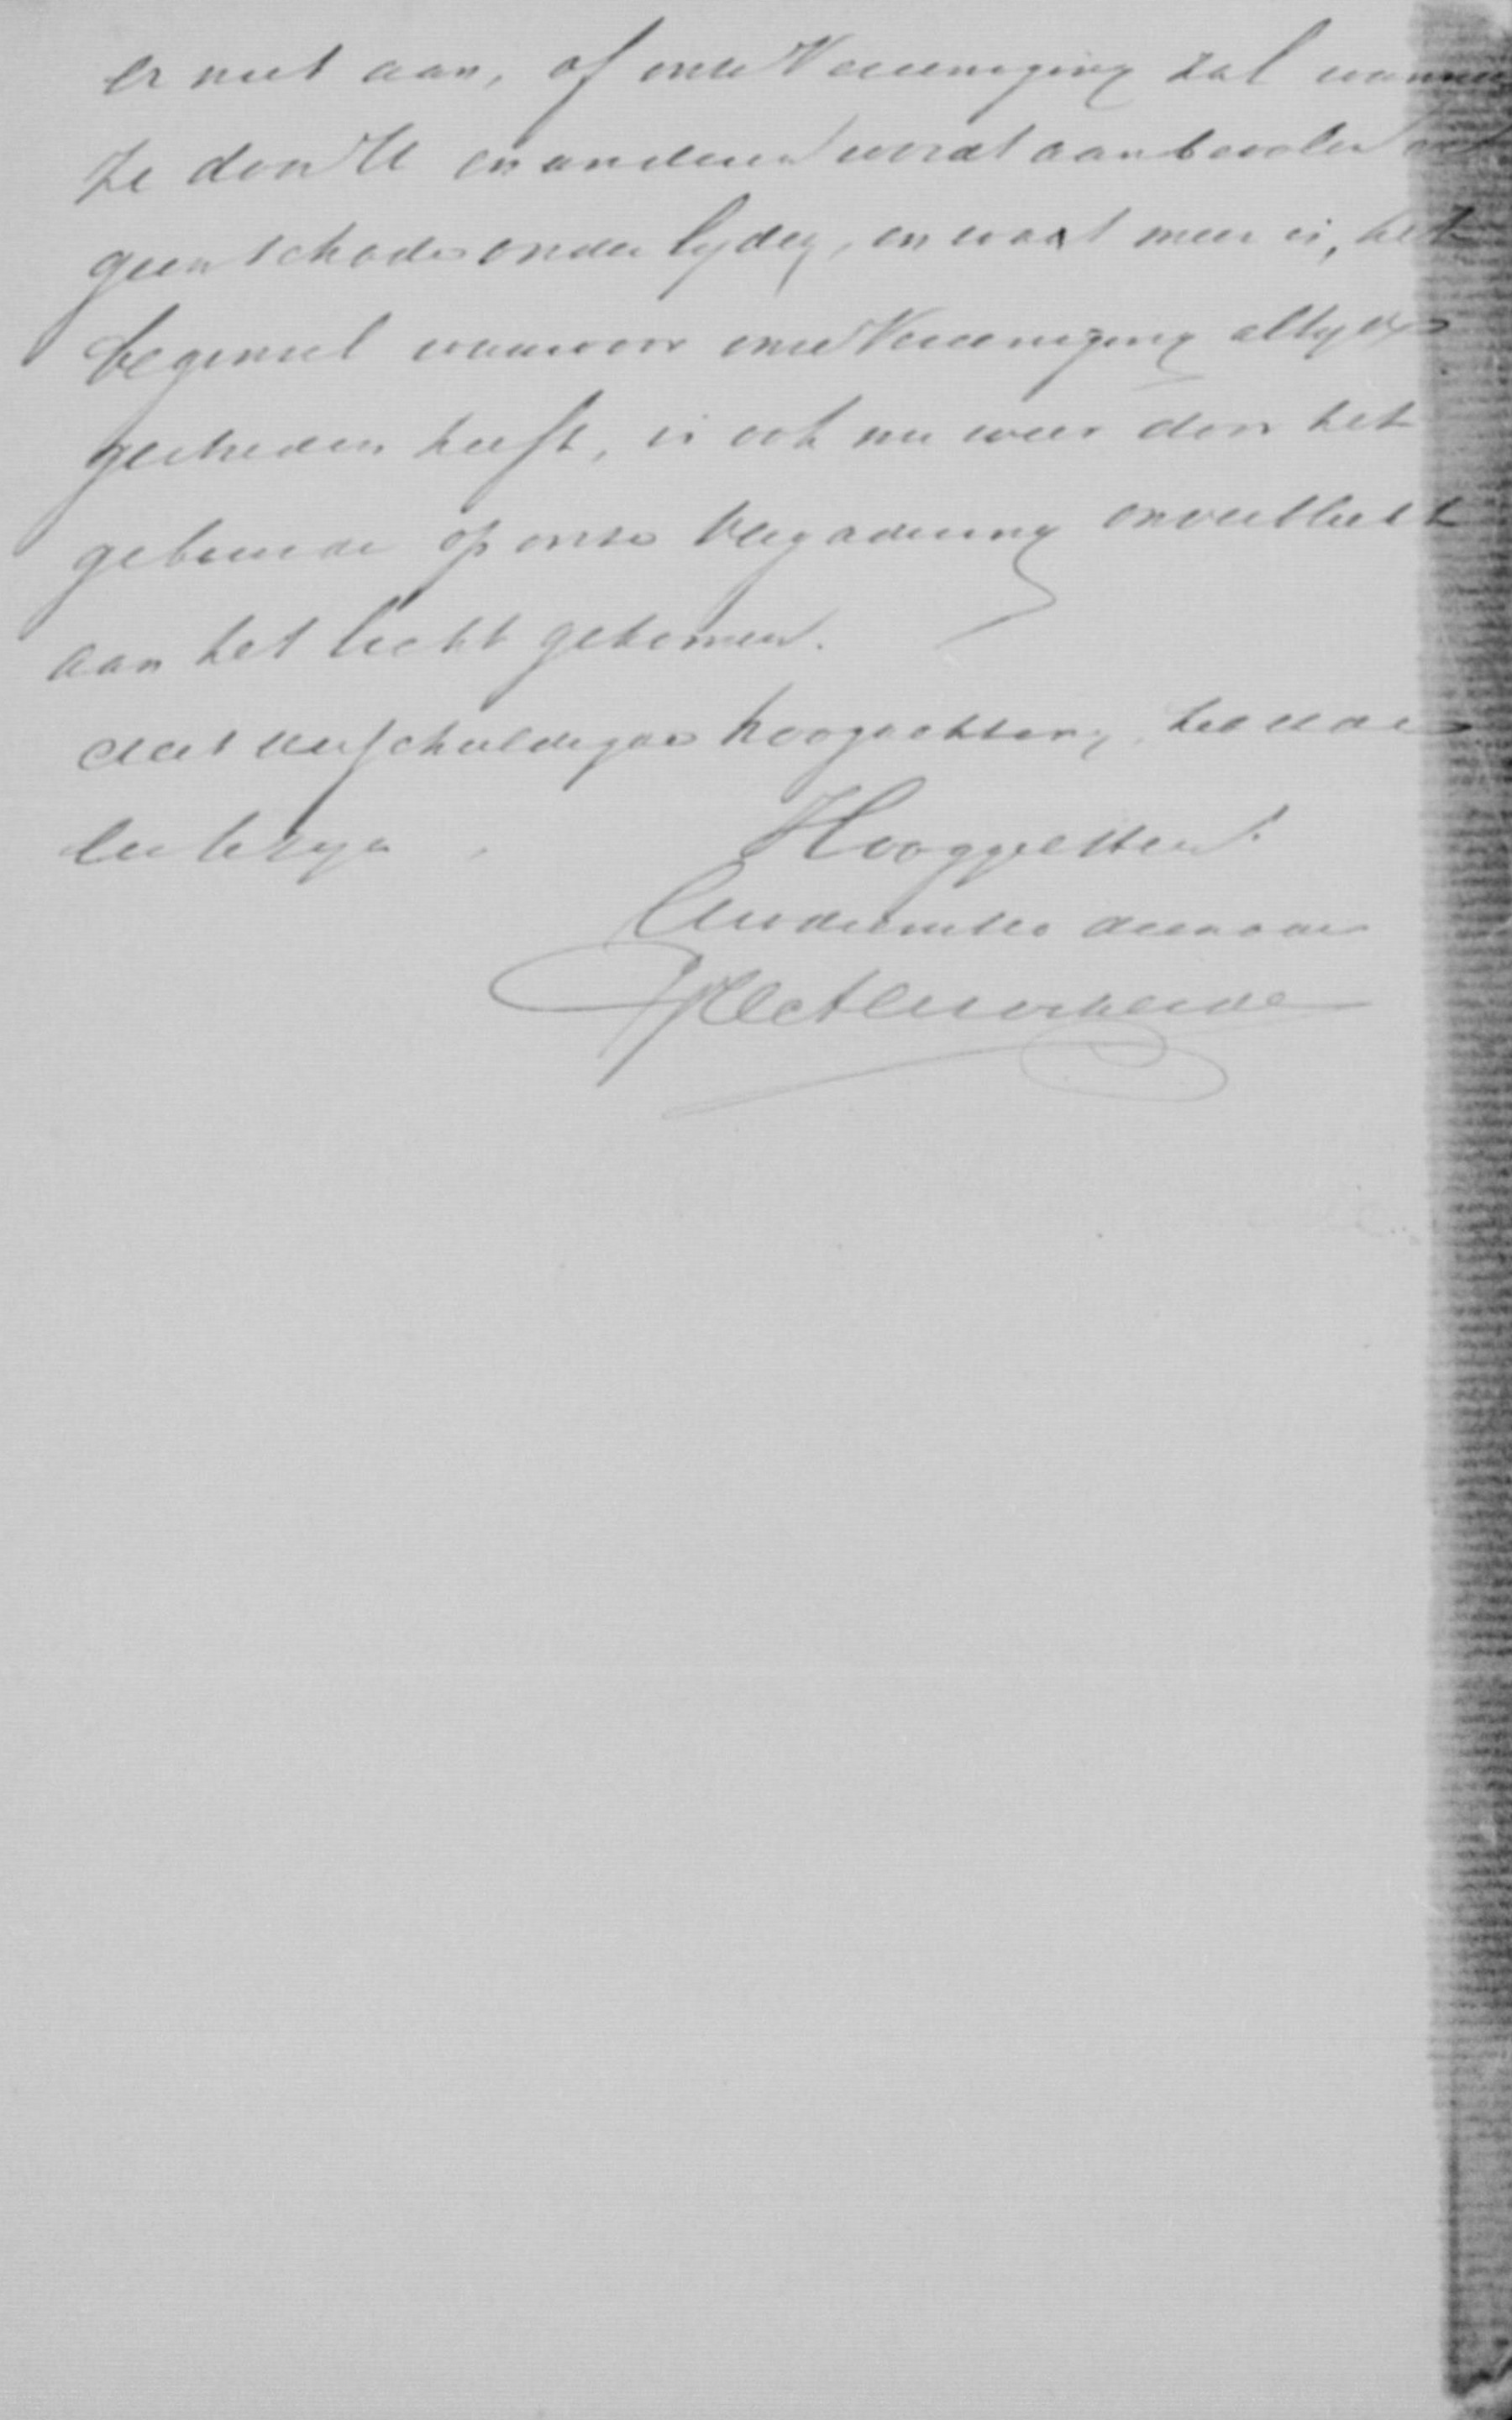 er niet aan, of onze Vereeniging zal wanneer
ze door U en anderen wordt aanbevolen
geen schade onder lyden, en wat meer is, het
beginsel waarvoor onze Vereeniging altyd
gestreden heeft, is ook nu weer door het
gebeurde op onze Vergadering onverbloemd
aan het licht gekomen.
Met verschuldigde hoogachting, heb ik de
eer te zyn,
Hooggeachte
Uwedienstw. dienaar